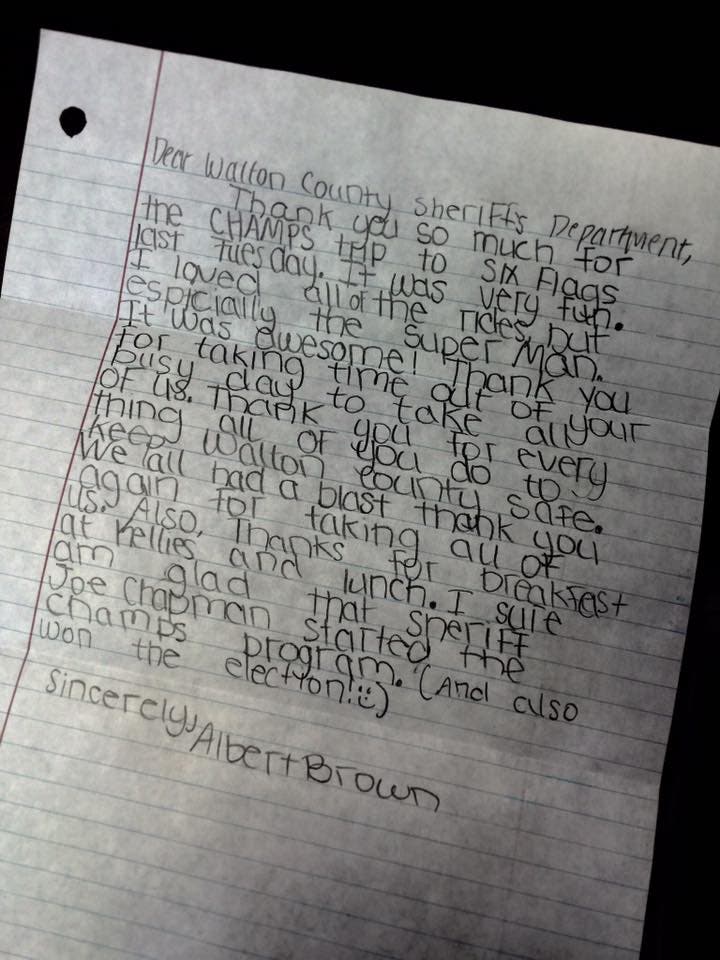 Dear Walton County Sheriffs Department,
Thank you so much for
the CHAMPS trip to six Flags
last Tuesday. It was very fun.
I loved all of the rides but
espicially the super Man.
It was awesome! Thank you
for taking time out of your
busy day to take all
of us. Thank you for every
thing all of you do to
keep Walton county safe.
We all had a blast thank you
again for taking all of
us. Also, Thanks for breakfast
at Kellies and lunch. I sure
am glad that sheriff
Joe Chapman started the
champs program. (And also
won the election!)
Sincerely, Albert Brown